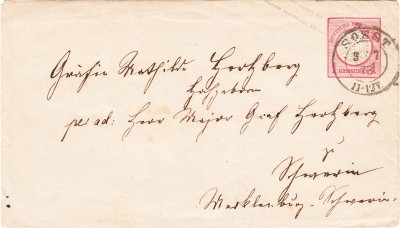 SOEST
3 7
11-12V
GROSCHEN
Gräfin Mathilde Hertzberg
Hochgeboren
pr ad: Herr Major Graf Hertzberg
Schwerin
Mecklenburg-Schwerin.